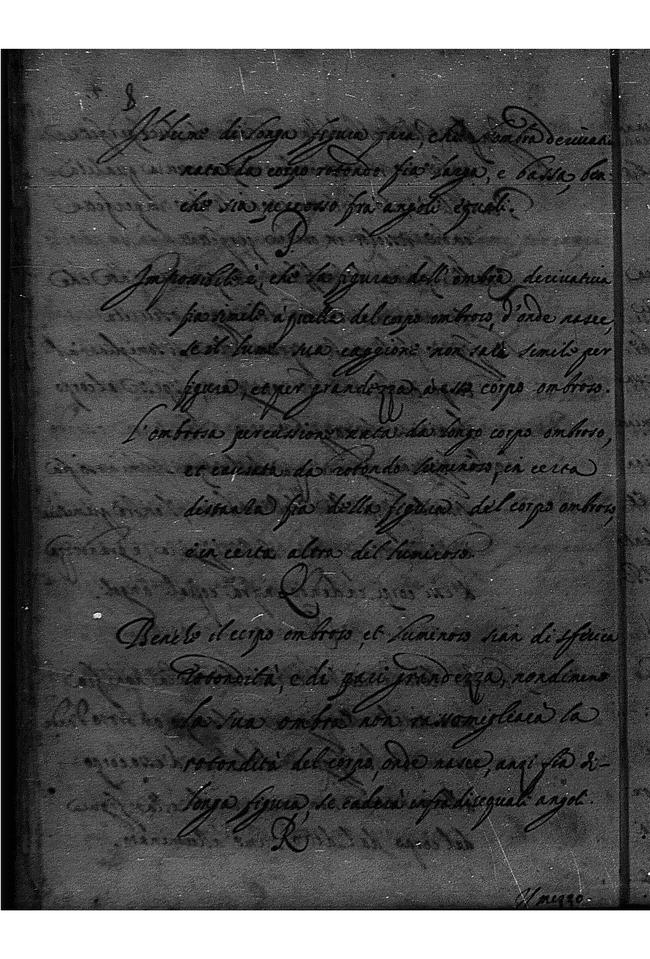 8
Il lume di longa figura farà, che l'ombra derivati
nata da corpo rotondo fia larga, e bassa, ben
che sia percosso fra angoli equali.
P
Impossibile è, che la figura dell'ombra derivativa
sia simile à quella del corpo ombroso, d'onde nasce,
se il lume sua caggione non sarà simile per
figura, et per grandezza à esso corpo ombroso.
L'ombrosa percussione nata da longo corpo ombroso,
et causata da rotondo luminoso, in certa
distanza fia della figura del corpo ombroso,
e in certa altra del luminoso.
Q
Benche il corpo ombroso, et luminoso sian di sferica
rotondità, e di pari grandezza, nondimeno
la sua ombra non rassomigliarà la
rotondità del corpo, onde nasce, anzi fia di
longa figura, se caderà infra disequali angoli.
R
Il mezzo